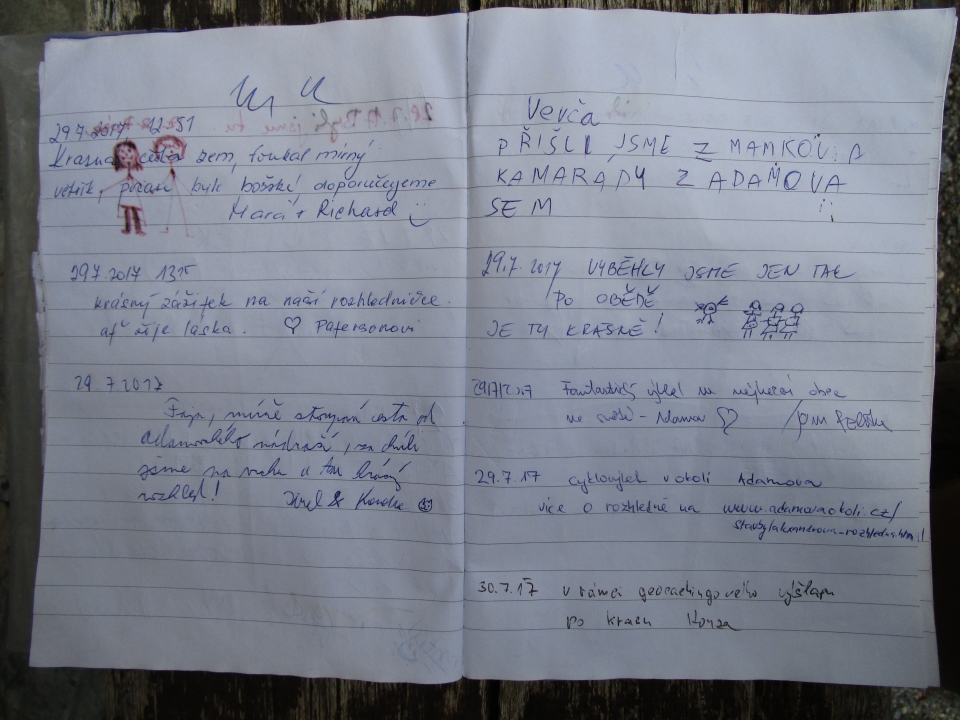 29.7.2017 12:51
Krásná zem, foukal mírný
větřík, byli božské doporučujeme
Marci + Richard
29.7.2017 13:15
krásný zážitek na naší rozhledničce.
ať žije láska. ♡ Patersonovi
29.7.2017
Fajn, mírně stoupavá cesta od
adamovského nádraží, za chvíli
jsme na vrchu a tu krásný
rozhled! Karel &
Verča
PŘIŠLI JSME Z MAMKOU A
KAMARÁDY Z ADAMOVA
SEM
29.7.2017 VYBĚHLY JSME JEN TAK
PO OBĚDĚ
JE TU KRÁSNĚ!
29/7/2017 Fantastický výhled na nejhezčí obec
na světě - Adamov ♡
29.7.17 cyklovýlet v okolí Adamova
více o rozhledně na www.adamovaokoli.cz/
stavby/alexandrova-rozhledna.html
30.7.17 v rámci geocachingového výšlapu
po krasu Honza